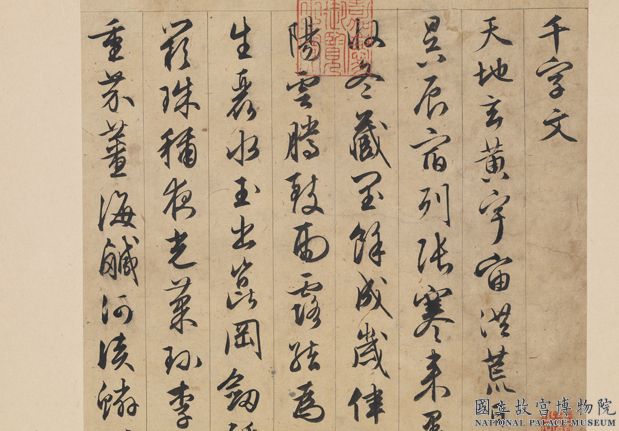 千字文
天地玄黃宇宙洪荒
昃辰宿列張寒來暑
收冬藏閏餘成歲律
陽雲騰致雨露結為
生麗水玉出崑岡劒
珠稱夜光菓珍李
重芥薑海鹹河淡鱗
國立故宮博物院
NATIONAL PALACE MUSEUM